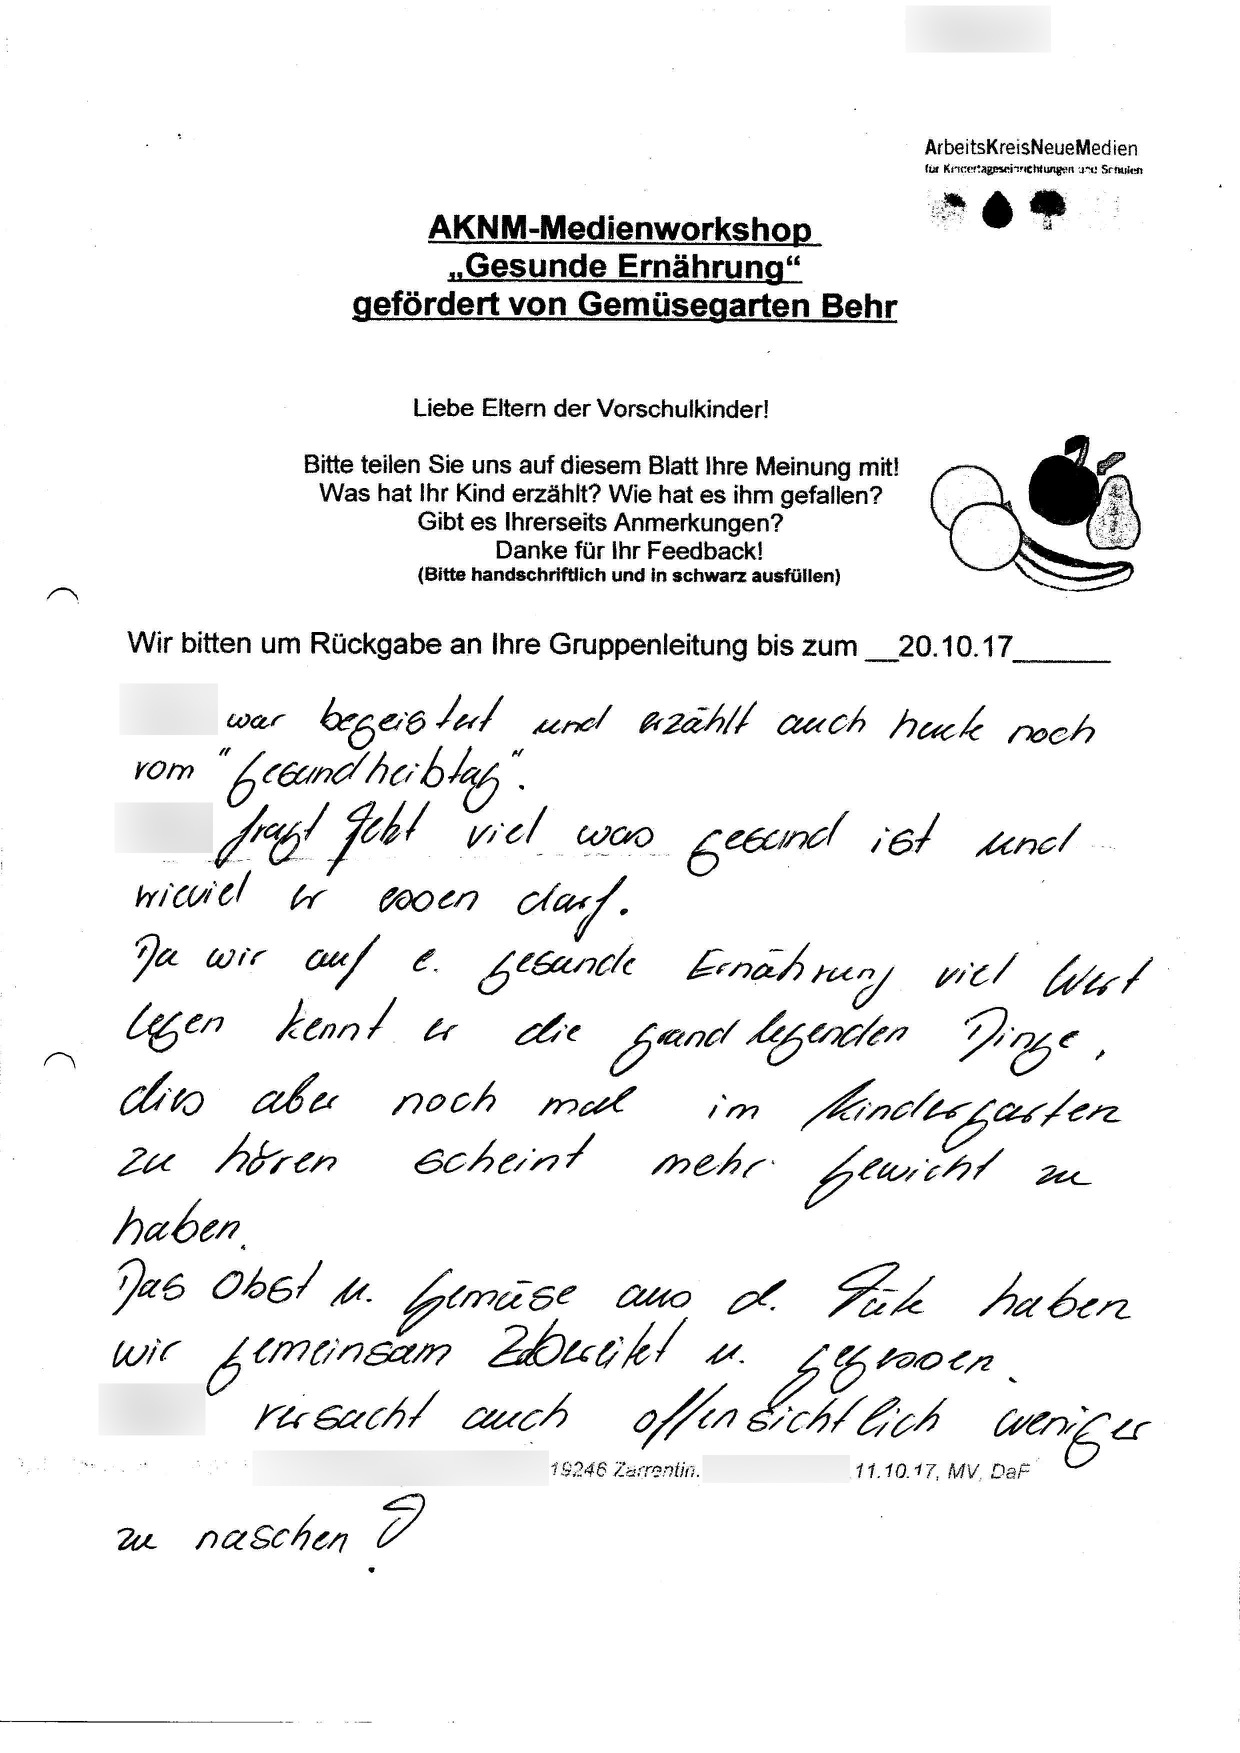 ArbeitsKreisNeueMedien
für Kindertageseinrichtungen und Schulen
AKNM-Medienworkshop
„Gesunde Ernährung“
gefördert von Gemüsegarten Behr
Liebe Eltern der Vorschulkinder!
Bitte teilen Sie uns auf diesem Blatt Ihre Meinung mit!
Was hat Ihr Kind erzählt? Wie hat es ihm gefallen?
Gibt es Ihrerseits Anmerkungen?
Danke für Ihr Feedback!
(Bitte handschriftlich und in schwarz ausfüllen)
Wir bitten um Rückgabe an Ihre Gruppenleitung bis zum __20.10.17______
war begeistert und erzählt auch heute noch
vom "Gesundheitstag".
fragt jetzt viel was gesund ist und
wieviel er essen darf.
Da wir auf e. gesunde Ernährung viel Wert
legen kennt er die grundlegenden Dinge,
dies aber noch mal im Kindergarten
zu hören scheint mehr Gewicht zu
haben.
Das Obst u. Gemüse aus d. Tüte haben
wir gemeinsam zubereitet u. gegessen.
versucht auch offensichtlich weniger
19246 Zarrentin. 11.10.17, MV, DaF
zu naschen!